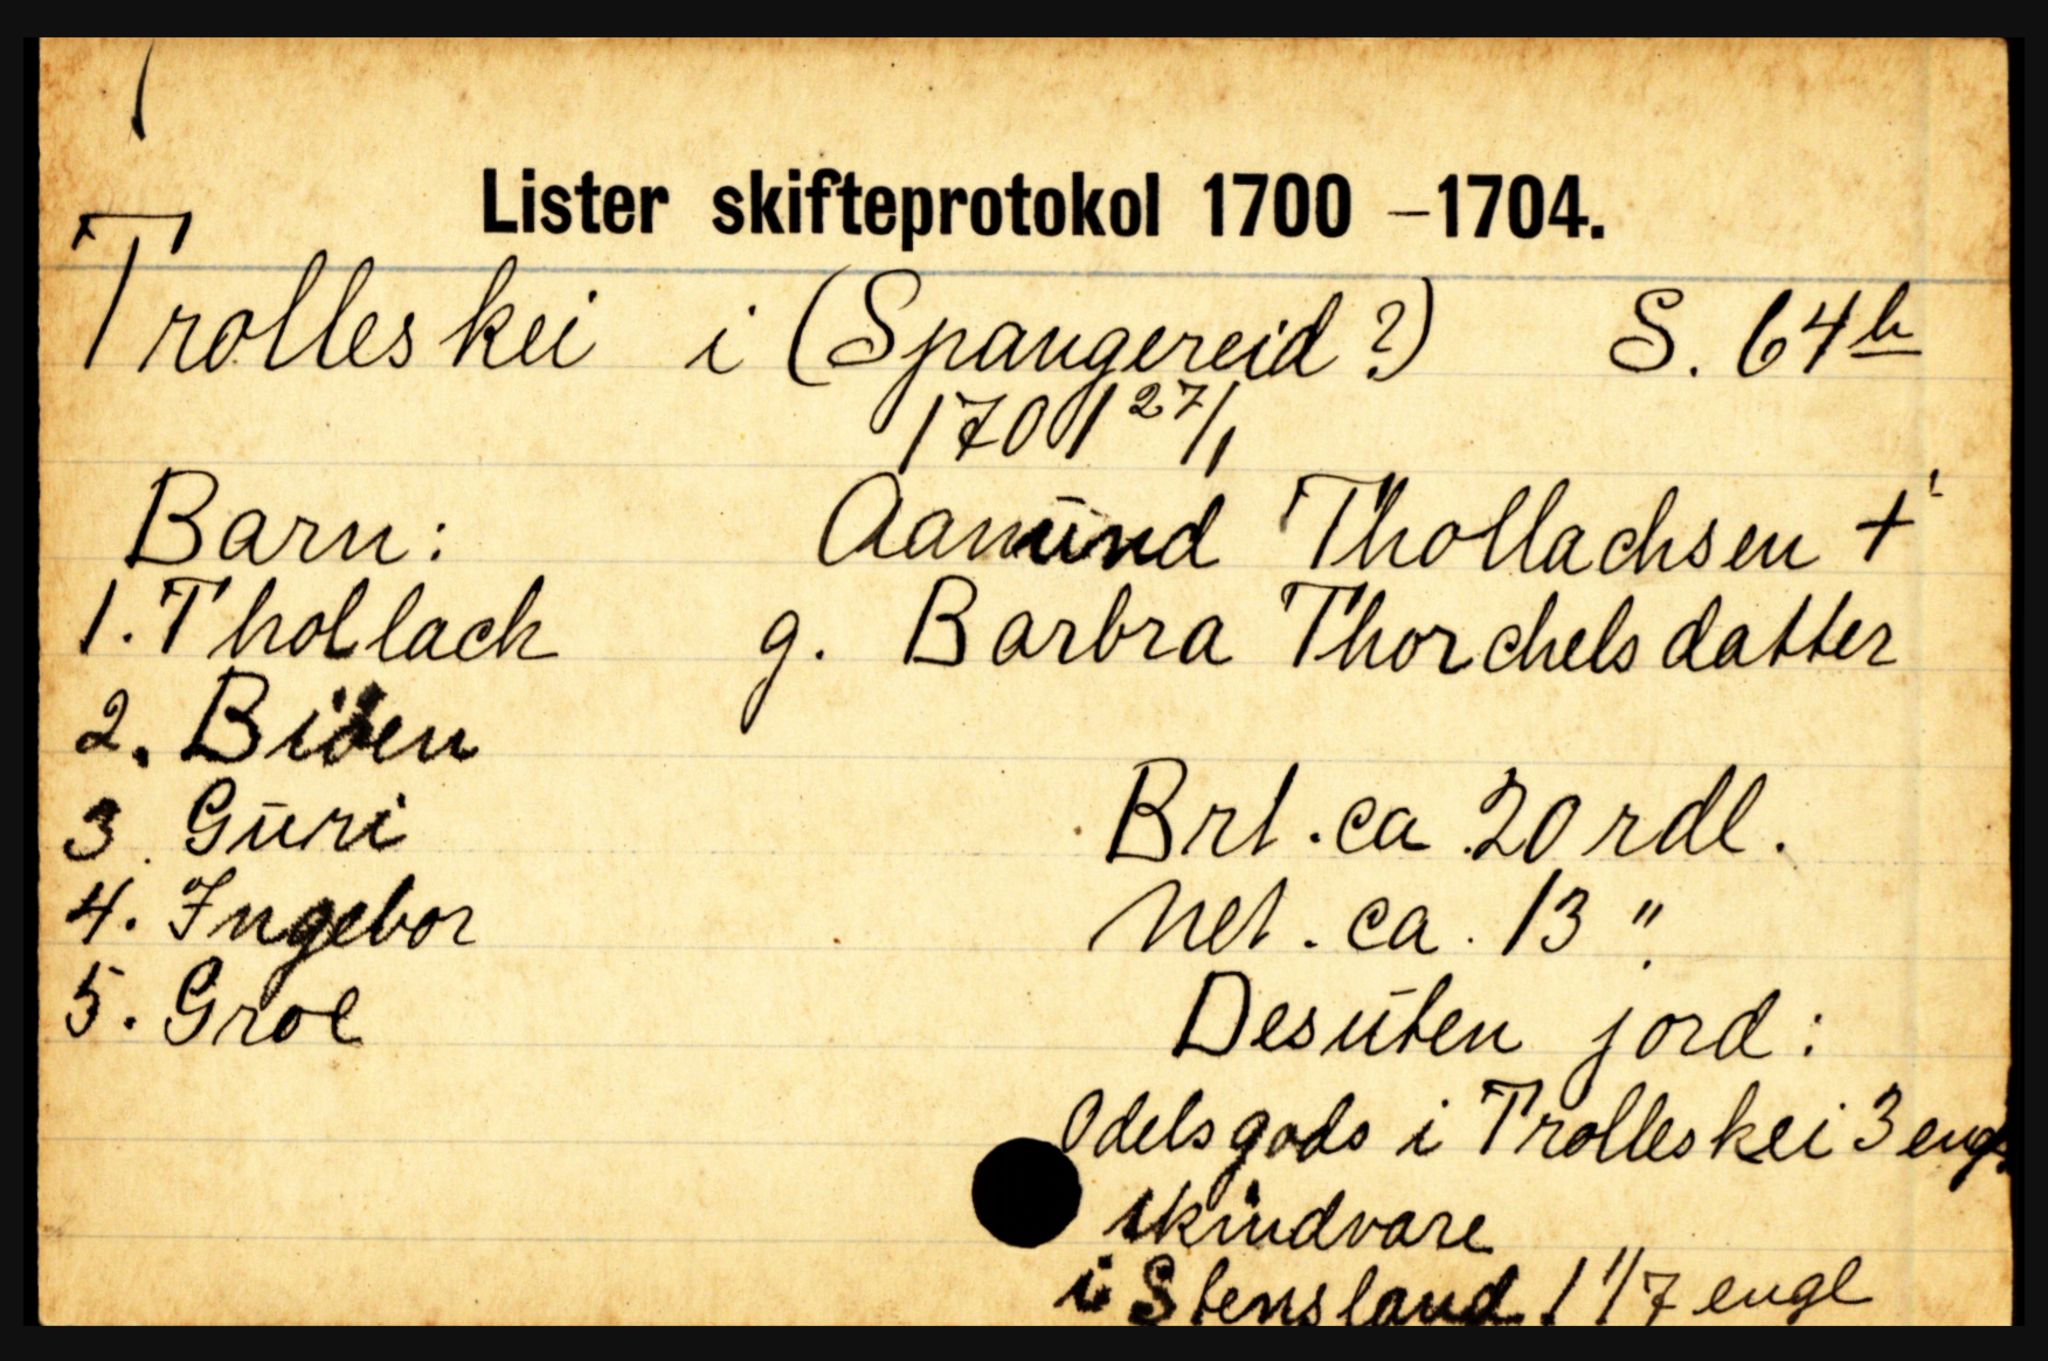 Lister skifteprotokol 1700 –1704.
Trolleskei i (Spangereid?) S. 64b
1701 27/1
Barn: Aamūnd Thollachsen +
1. Thollach g. Barbra Thorchelsdatter
2. Biöen
3. Gūri Brt. ca 20 rdl.
4. Ingebor Net. ca. 13 ".
5. Groe Desūten jord:
Odelsgods i Trolleskei 3 engl
skindvare
i Stensland 1 1/7 engl